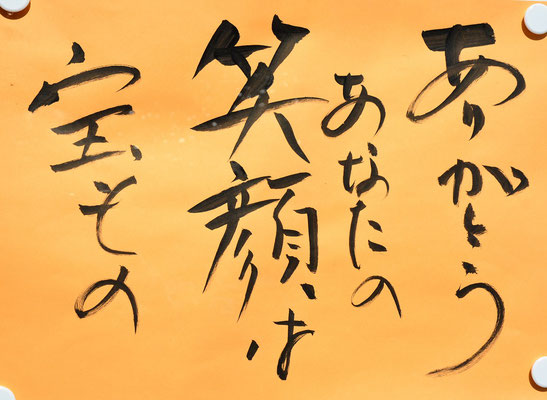 ありがとう
あなたの
笑顔は
宝もの